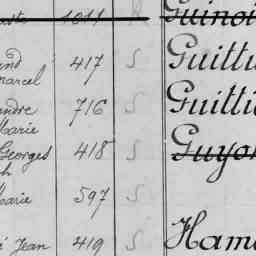 1011 Guinoi
417 S Guittu
marcel
andre 716 S Guitti
Marie
Georges 418 S Guyon
h
Marie 597 S
é Jean 419 S Hamo